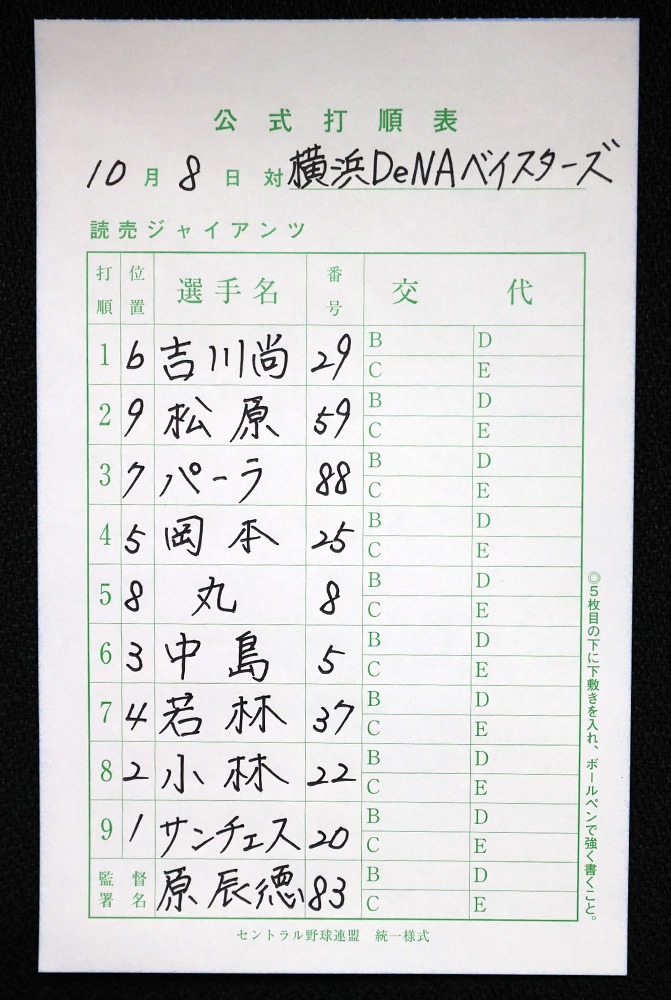 公式打順表
10月8日 対 横浜DeNAベイスターズ
読売ジャイアンツ
打順 位置 選手名 番号 交代
1 6 吉川尚 29 B D C E
2 9 松原 59 B D C E
3 7 パーラ 88 B D C E
4 5 岡本 25 B D C E
5 8 丸 8 B D C E
6 3 中島 5 B D C E
7 4 若林 37 B D C E
8 2 小林 22 B D C E
9 1 サンチェス 20 B D C E
監督署名 原辰徳 83 B D C E
◎5枚目の下に下敷きを入れ、ボールペンで強く書くこと。
セントラル野球連盟 統一様式